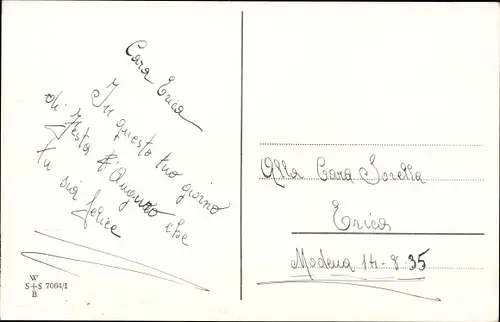 Cara Erica
In questo tuo giorno
di festa t'Auguro che
tu sia felice
W
S+S 7064/1
B.
Alla Cara Sorella
Erica
Modena 14-8-35